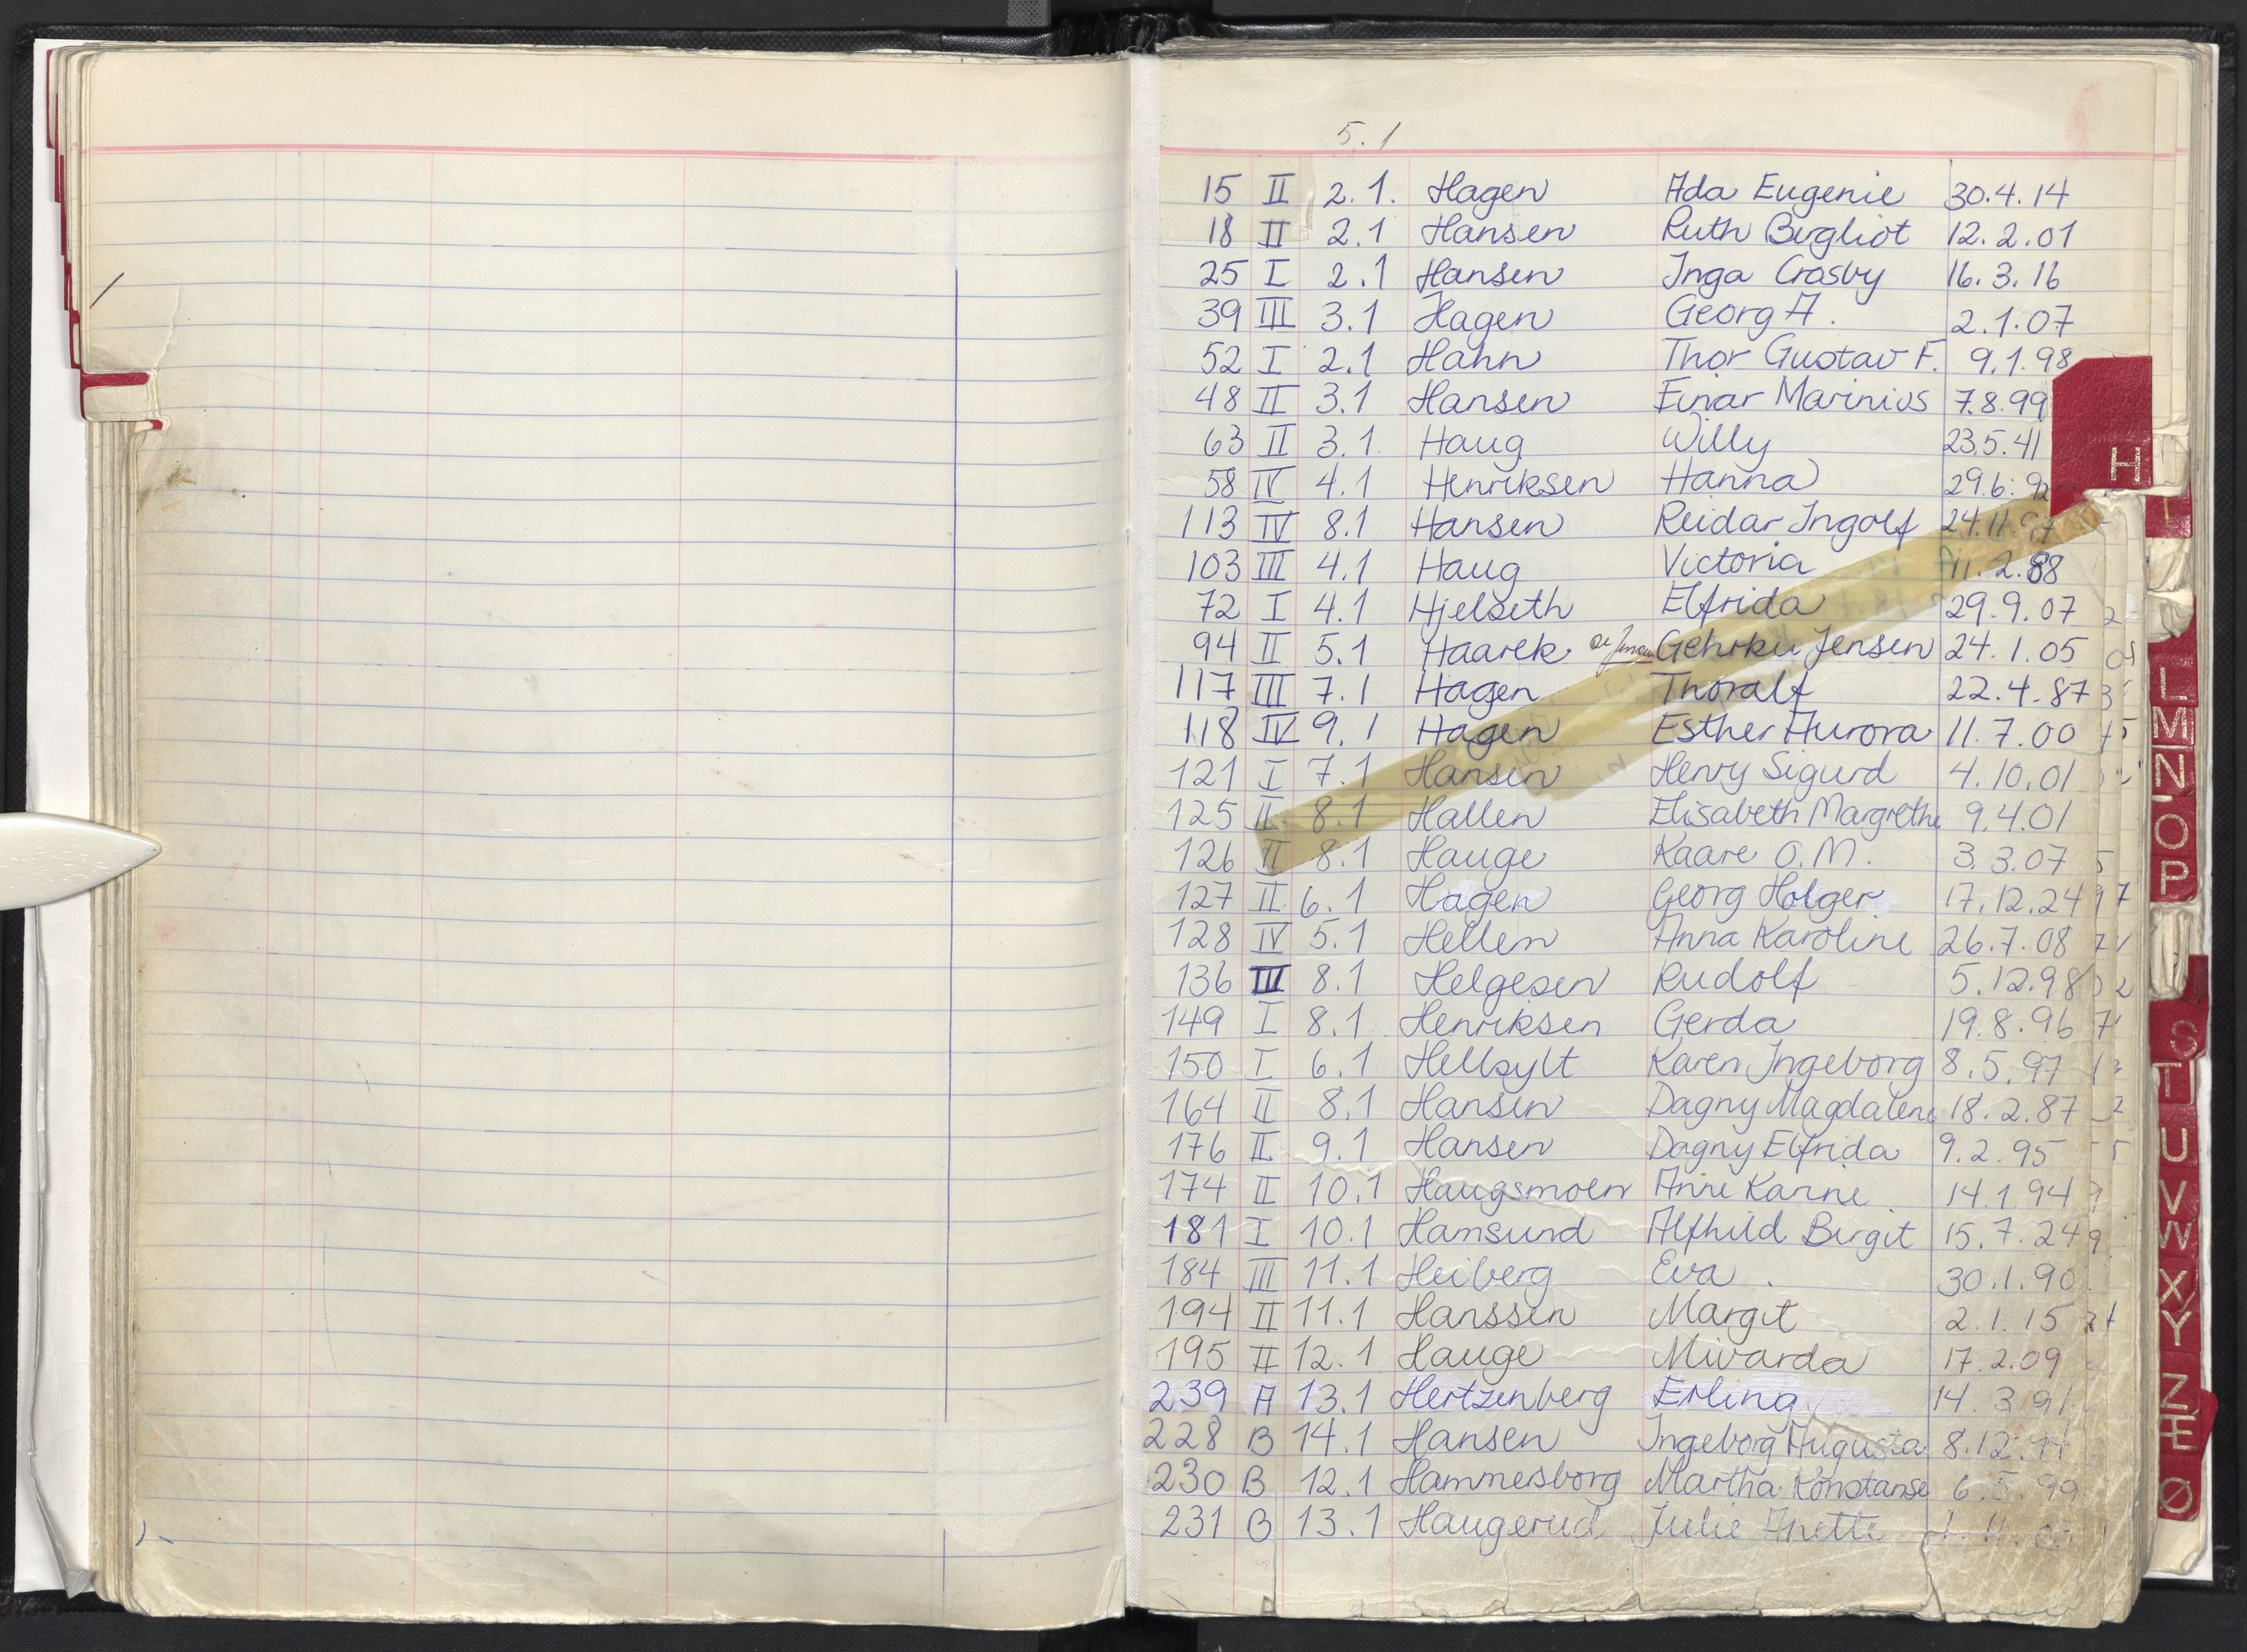 5.1
15 II 2.1. Hagen Ada Eugenie 30.4.14
18 II 2.1 Hansen Ruth Bergliot 12.2.01
25 I 2.1 Hansen Inga Crosby 16.3.16
39 III 3.1 Hagen Georg A. 2.1.07
52 I 2.1 Hahn Thor Gustav F. 9.1.98
48 II 3.1 Hansen Einar Marinius 7.8.99
63 II 3.1 Haug Willy 23.5.41
58 IV 4.1 Henriksen Hanna 29.6.92
113 IV 8.1 Hansen Reidar Ingolf 24.11.97
103 III 4.1 Haug Victoria 11.2.88
72 I 4.1 Hjelseth Elfrida 29.9.07
94 II 5.1 Haarek Gehrku Jensen 24.1.05
117 III 7.1 Hagen Thoralf 22.4.87
118 IV 9.1 Hagen Esther Aurora 11.7.00
121 I 7.1 Hansen Henry Sigurd 4.10.01
125 II 8.1 Hallen Elisabeth Margrethe 9.4.01
126 II 8.1 Hauge Kaare O.M. 3.3.07
127 II 6.1 Hagen Georg Holger 17.12.24
128 IV 5.1 Hellem Anna Karoline 26.7.08
136 III 8.1 Helgesen Rudolf 5.12.98
149 I 8.1 Henriksen Gerda 19.8.96
150 I 6.1 Hellsylt Karen Ingeborg 8.5.97
164 II 8.1 Hansen Dagny Magdalene 18.2.87
176 II 9.1 Hansen Dagny Elfrida 9.2.95
174 II 10.1 Haugsmoen Anne Karine 14.1.94
181 I 10.1 Hamsund Alfhild Birgit 15.7.24
184 III 11.1 Heiberg Eva. 30.1.90
194 II 11.1 Hanssen Margit 2.1.15
195 II 12.1 Hauge Mivarda 17.2.09
239 A 13.1 Hertzenberg Erling 14.3.91
228 B 14.1 Hansen Ingeborg Augusta 8.12
230 B 12.1 Hammersborg Martha Konstanse 6.5.99
231 B 13.1 Haugerud Julie Anette 1.11.03
H
I
L
M
N
O
P
S
T
U
V
W
X
Y
Z
Æ
Ø